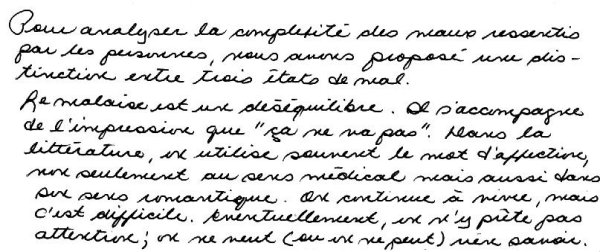 Pour analyser la complexité des maux ressentis
par les personnes, nous avons proposé une dis-
tinction entre trois états de mal.
Le malaise est un déséquilibre. Il s'accompagne
de l'impression que "ça ne va pas". Dans la
littérature, on utilise souvent le mot d'affection,
non seulement au sens médical mais aussi dans
son sens romantique. On continue à vivre, mais
c'est difficile. Éventuellement, on n'y prête pas
attention ; on ne veut (ou on ne peut) rien savoir.